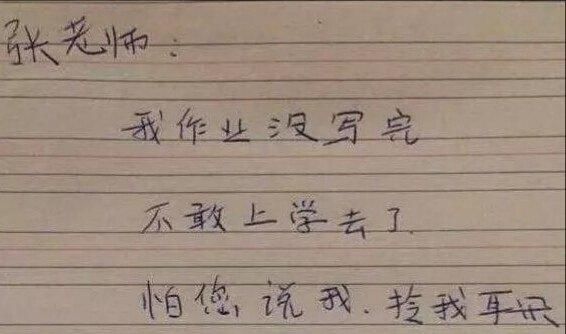 张老师:
我作业没写完
不敢上学去了.
怕您,说我.拎我耳朵